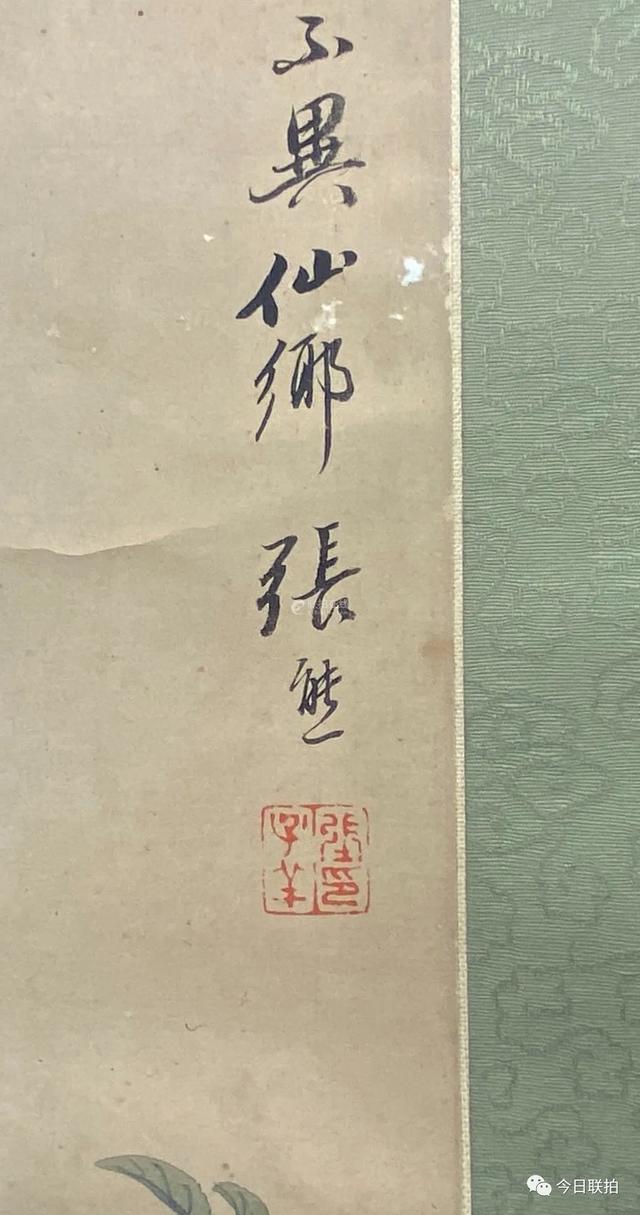 不異仙鄉 張熊
張印
子羊
今日联拍